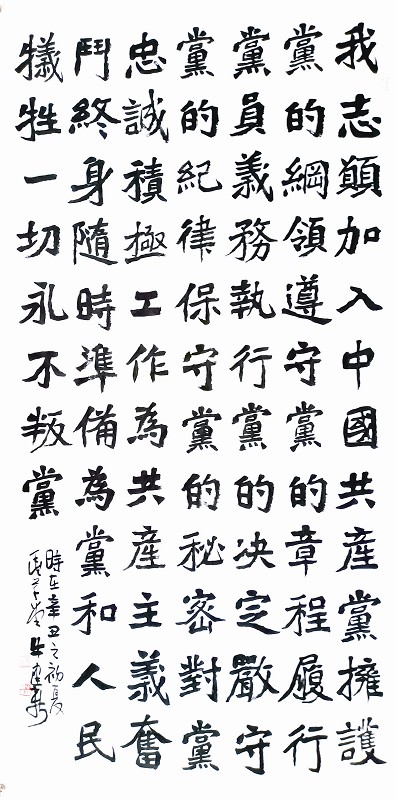 我志願加入中國共產黨擁護
黨的綱領遵守黨的章程履行
黨員義務執行黨的决定嚴守
黨的紀律保守黨的秘密對黨
忠誠積極工作為共產主義奮
鬥終身隨時準備為黨和人民
犧牲一切永不叛黨
時在辛丑之初夏